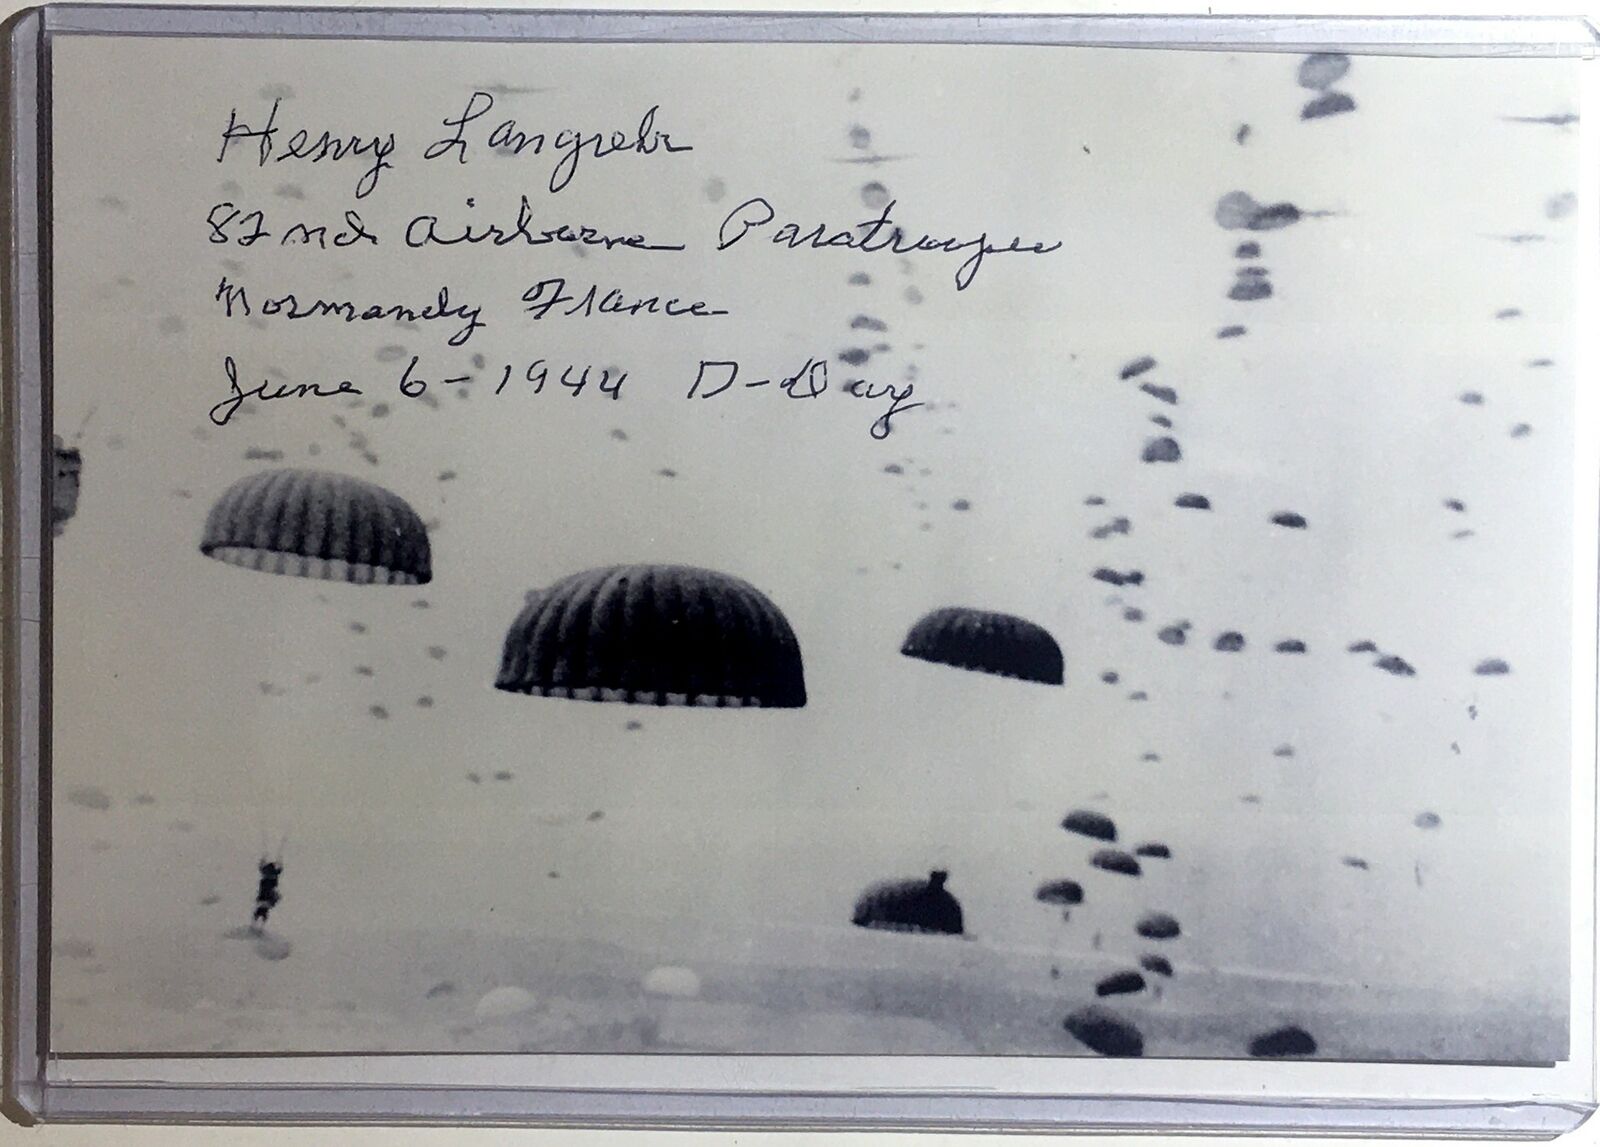 Henry Langrehr
82nd Airborne Paratrooper
Normandy France
June 6-1944 D-Day